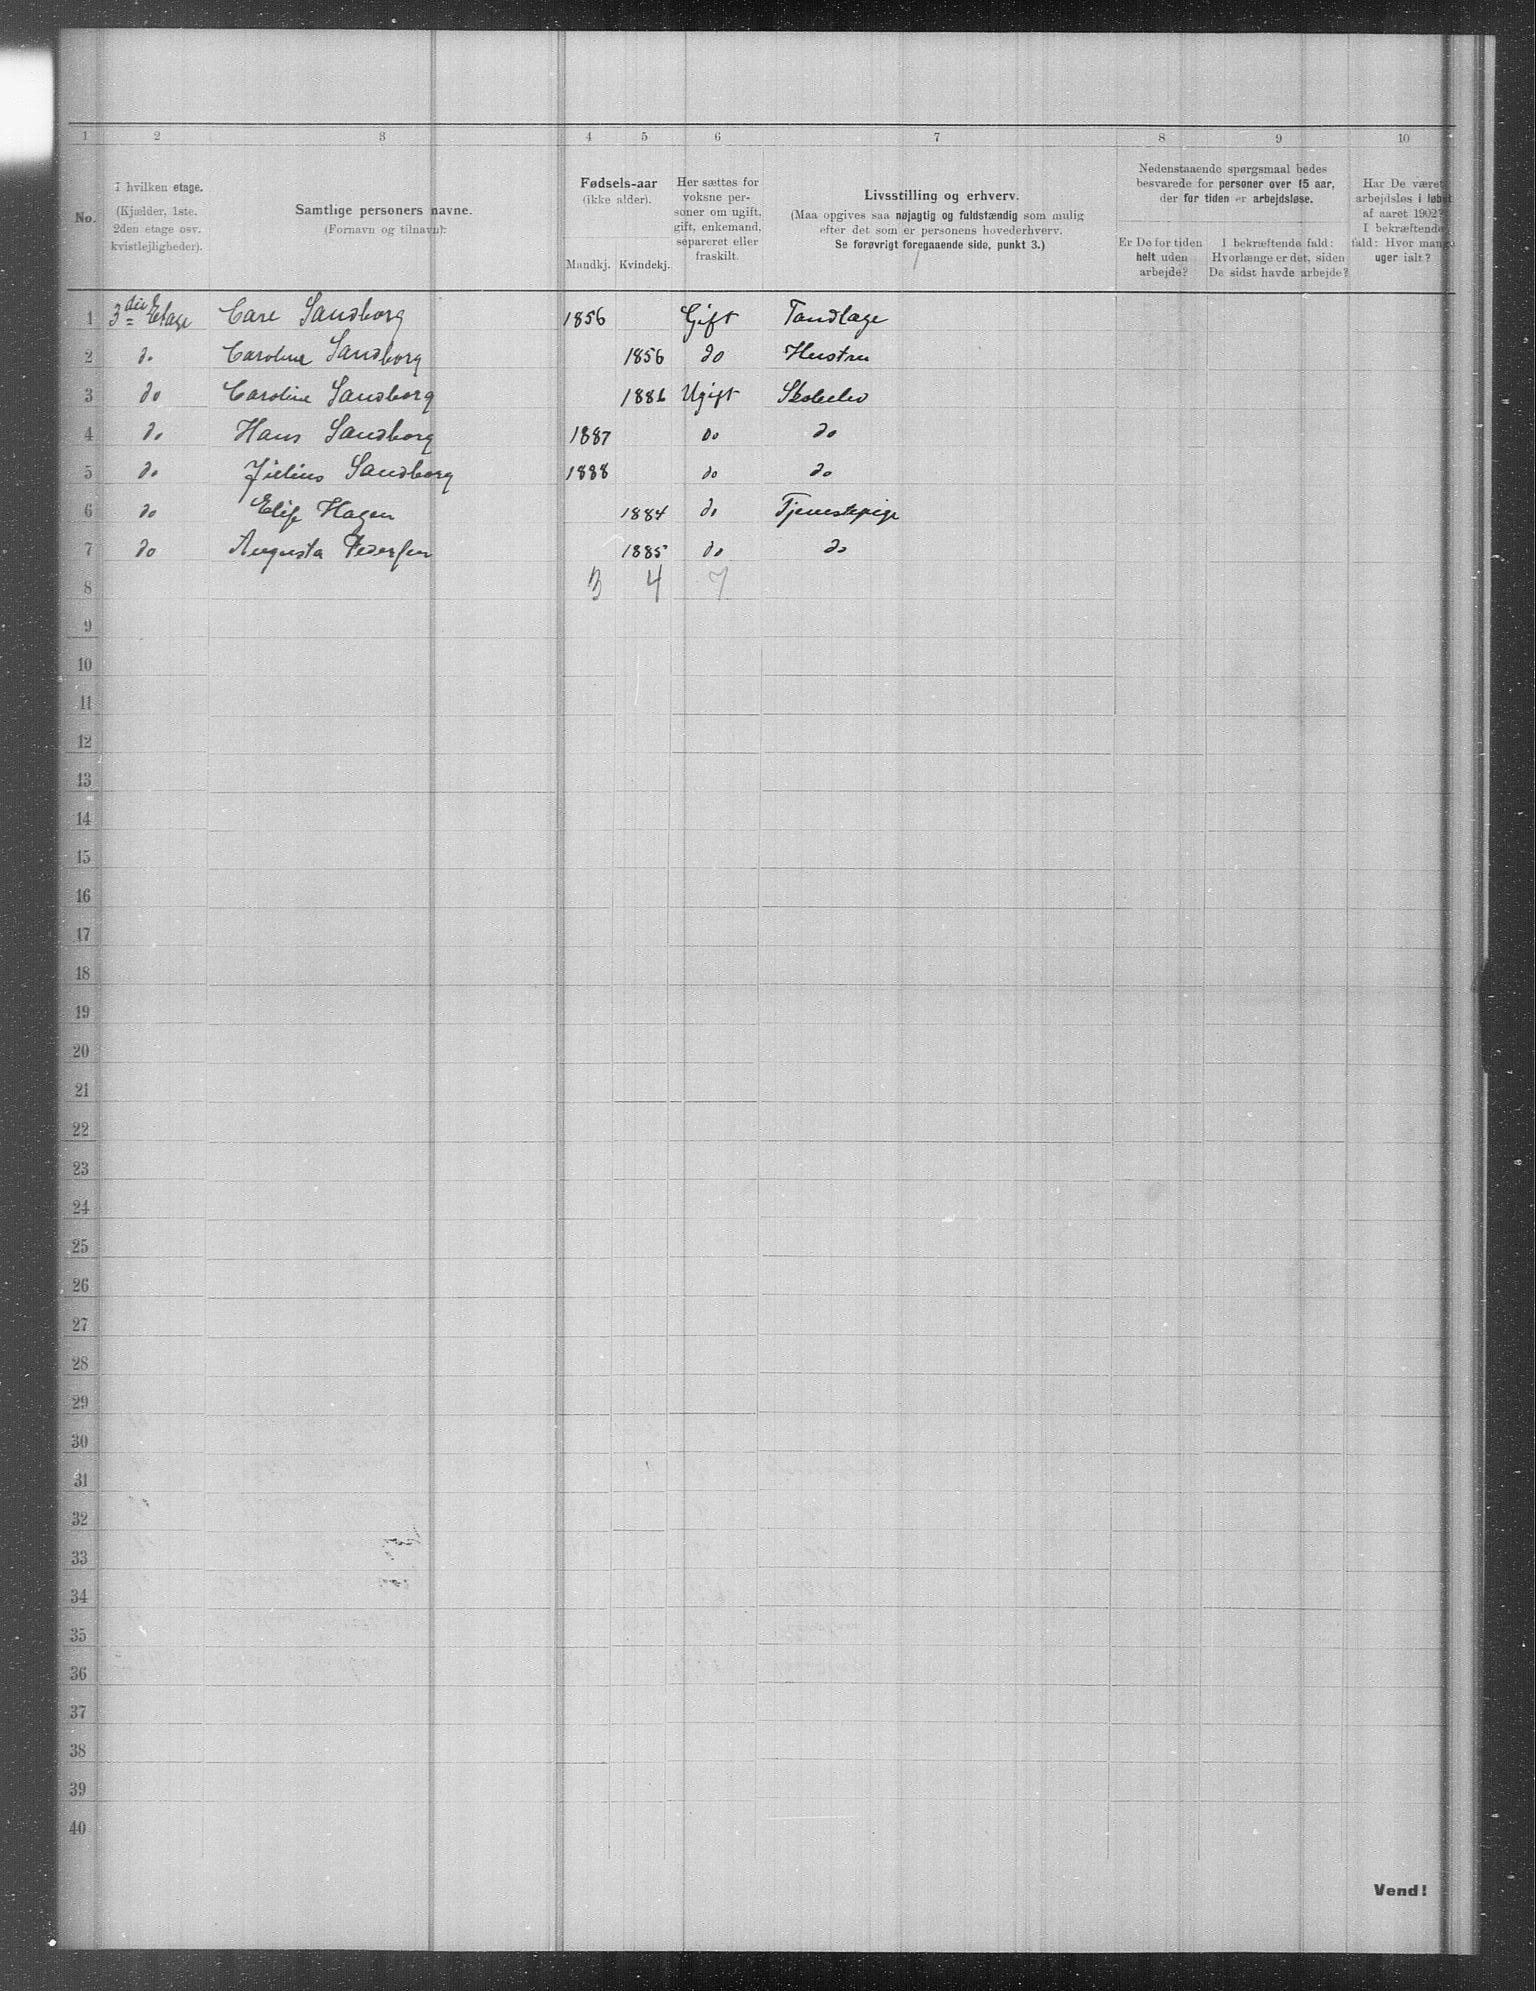 1 2 3 4 5 6 7 8 9 10
No.
I hvilken etage.
(Kjælder, 1ste.
2den etage osv.
kvistlejligheder).
Samtlige personers navne.
(Fornavn og tilnavn).
Fødsels-aar
(ikke alder).
Mandkj. Kvindekj.
Her sættes for
voksne per-
soner om ugift,
gift, enkemand,
separeret eller
fraskilt.
Livsstilling og erhverv.
(Maa opgives saa nøjagtig og fuldstændig som mulig
efter det som er personens hovederhverv.
Se forøvrigt foregaaende side, punkt 3.)
Nedenstaaende spørgsmaal bedes
besvarede for personer over 15 aar,
der for tiden er arbejdsløse.
Er De for tiden
helt uden
arbejde?
I bekræftende fald:
Hvorlænge er det, siden
De sidst havde arbejde?
Har De været
arbejdsløs i løbet
af aaret 1902?
I bekræftende
fald: Hvor mange
uger ialt?
1 3die Etage Carl Sandborg 1856 Gift Tandlæge
2 do Caroline Sandborg 1856 do Hustru
3 do Caroline Sandborg 1886 Ugift Skoleelev
4 do Hans Sandborg 1887 do do
5 do Julius Sandborg 1888 do do
6 do Elise Hagen 1884 do Tjenestepige
7 do Augusta Pedersen 1885 do do
8 3 4 7
9
10
11
12
13
14
15
16
17
18
19
20
21
22
23
24
25
26
27
28
29
30
31
32
33
34
35
36
37
38
39
40
Vend!